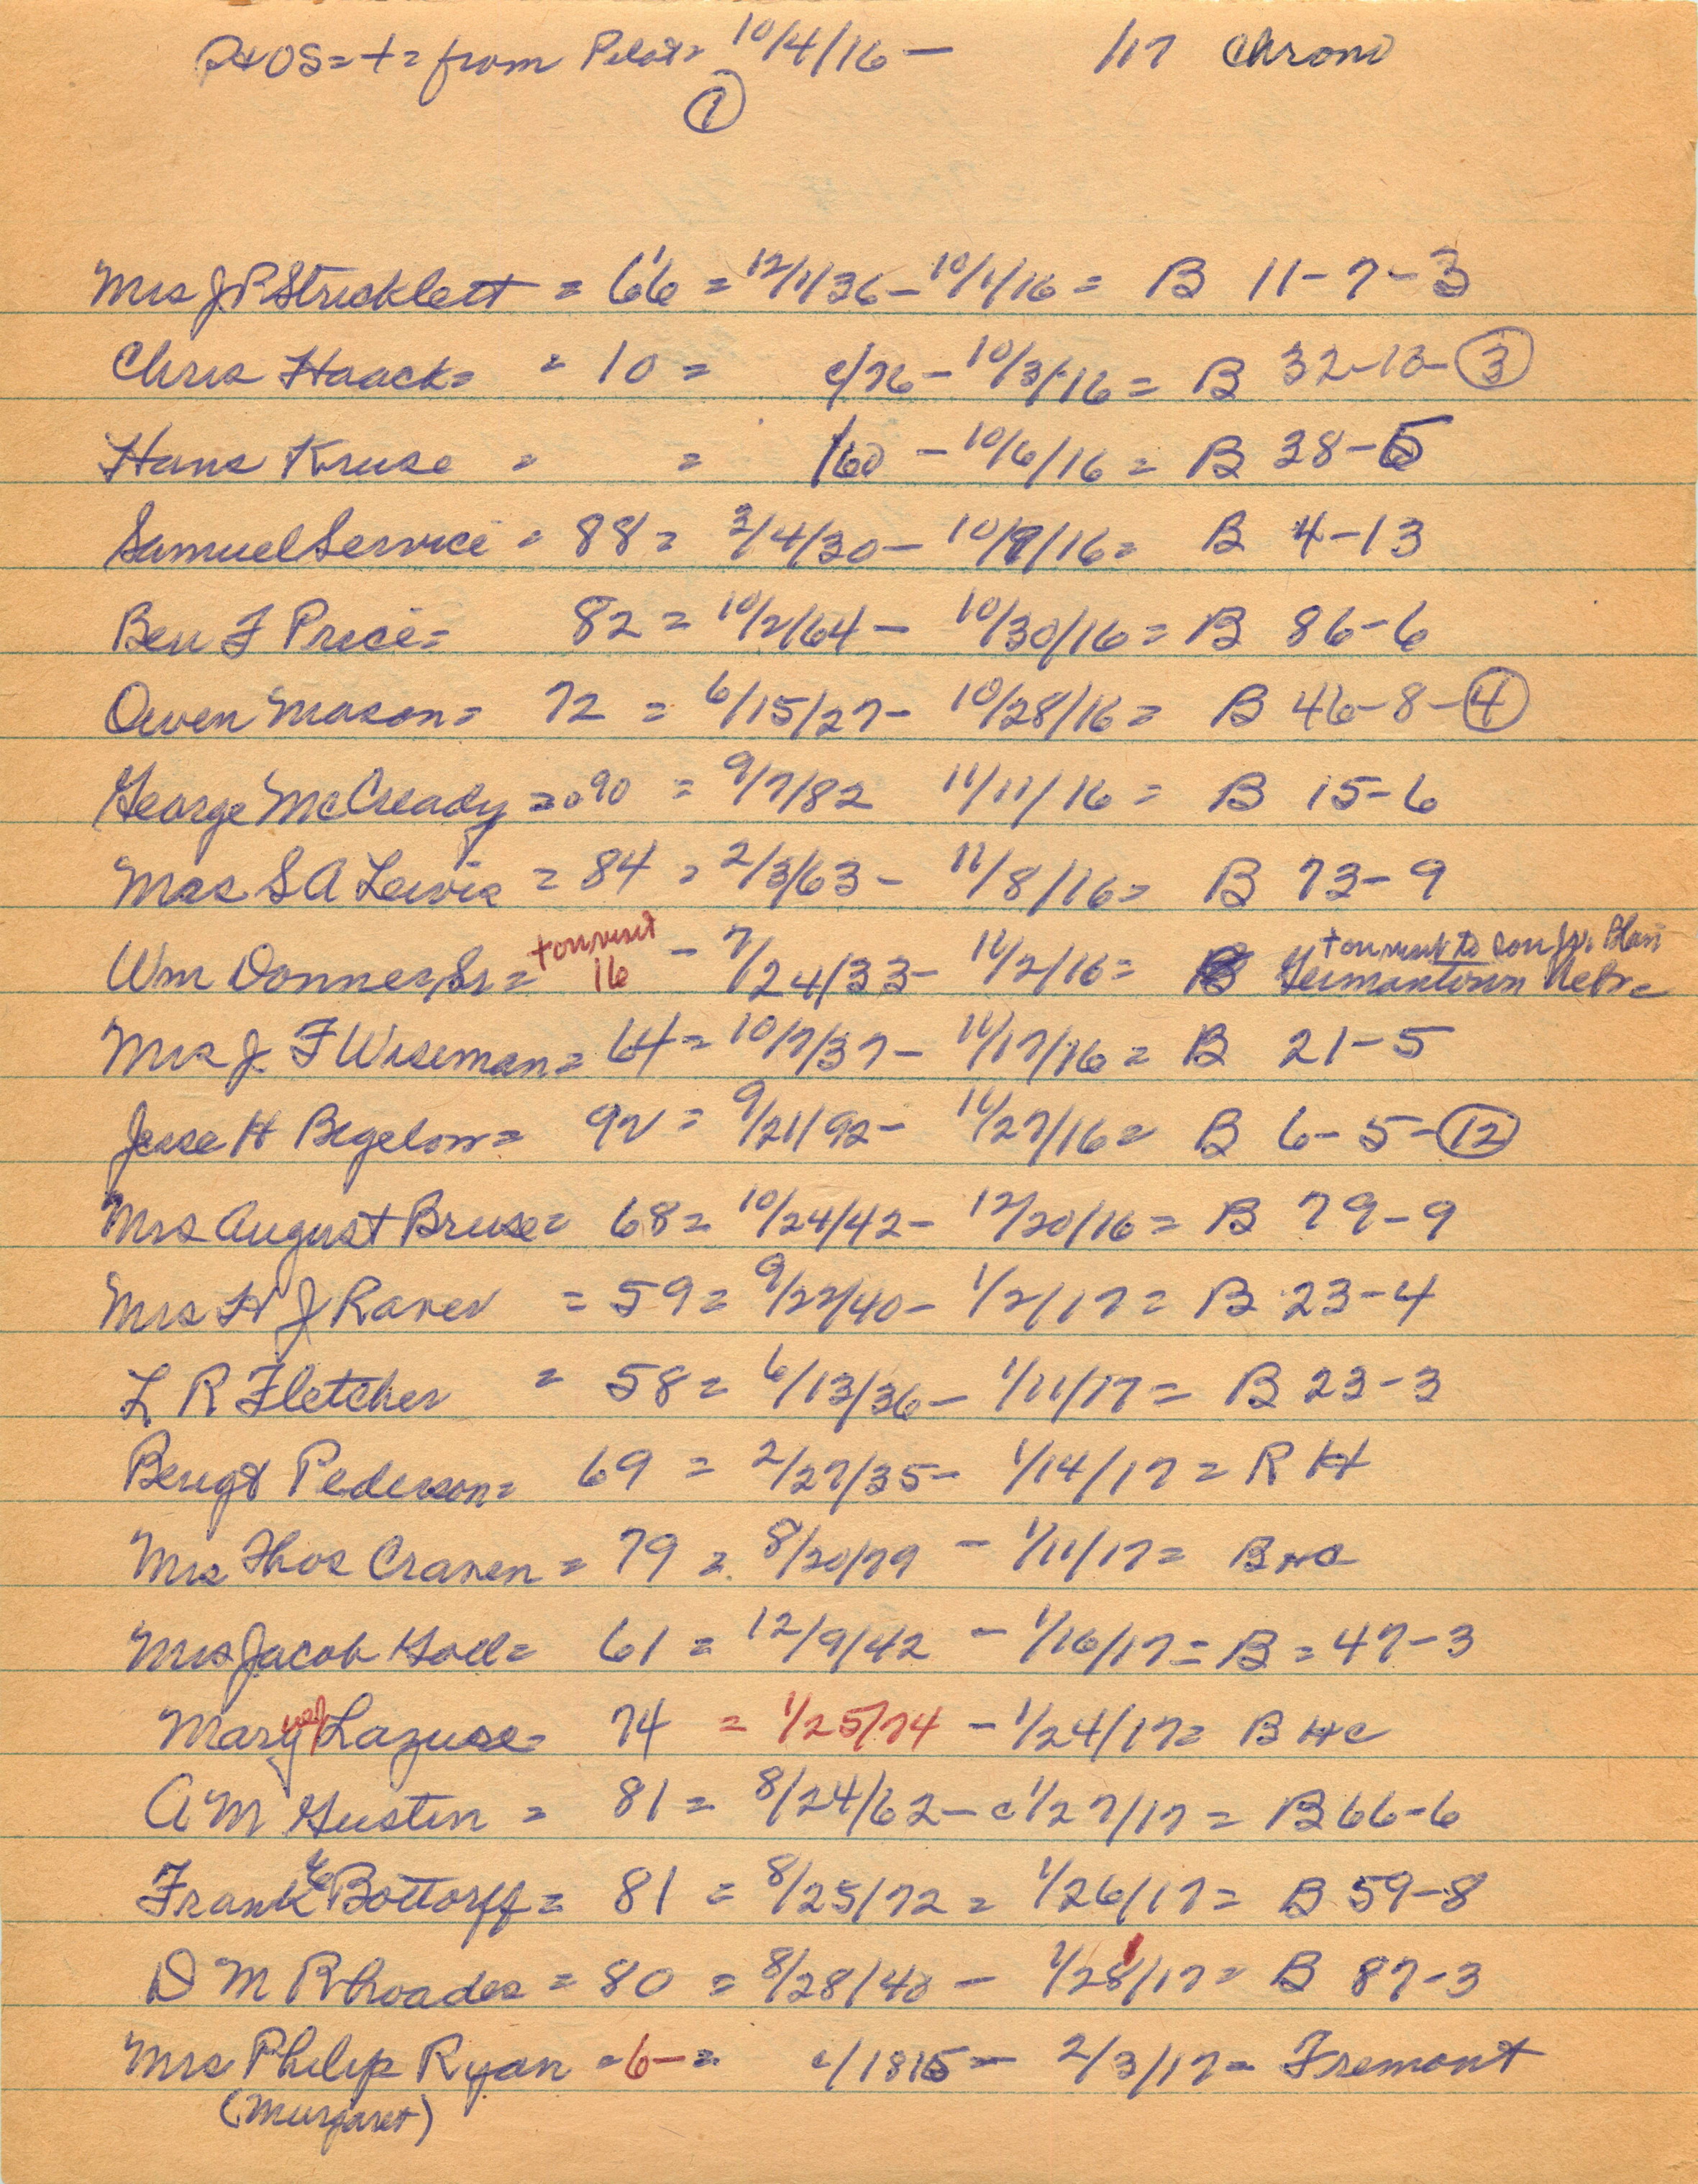 = + = from Pilot = 10/4/16 - /17 Chrono
①
Mrs J P Stricklett = 66 = 12/1/36 - 10/1/16 = B 11-7-3
Chris Haack = = 10 = c/76 - 10/3/16 = B 32-13-③
Hans Kruse = = /60 - 10/6/16 = B 38-5
Samuel Service = 88 = 3/4/30 - 10/9/16 = B 4-13
Ben F Price = 82 = 10/2/64 - 10/30/16 = B 86-6
Owen Mason = 72 = 6/15/27 - 10/28/16 = B 46-8-④
George McCready = 90 = 9/7/82 11/11/16 = B 15-6
Mrs S A Lewis = 84 = 2/3/63 - 11/8/16 = B 73-9
+ on visit to son Jr. Blair
Wm Donner, Sr = + on visit 16 - 7/24/33 - 11/2/16 = Germantown Nebr
Mrs J F Wiseman = 64 = 10/7/37 - 11/17/16 = B 21-5
Jesse H Bigelow = 92 = 9/21/92 - 11/27/16 = B 6-5-⑫
Mrs August Bruse = 68 = 10/24/42 - 12/20/16 = B 79-9
Mrs H J Raver = 59 = 9/22/40 - 1/2/17 = B 23-4
L R Fletcher = 58 = 6/13/36 - 1/11/17 = B 23-3
Bengt Pederson = 69 = 2/27/35 - 1/14/17 = R H
Mrs Thos Craven = 79 = 8/20/79 - 1/11/17 = B HC
Mrs Jacob Goll = 61 = 12/9/42 - 1/16/17 = B = 47-3
Mary Lazure = 74 = 1/25/74 - 1/24/17 = B HC
A M Gustin = 81 = 8/24/62 - c 1/27/17 = B 66-6
Frank E Bottorff = 81 = 8/25/72 = 1/26/17 = B 59-8
D M Rhoades = 80 = 8/28/40 - 1/28/17 = B 87-3
Mrs Philip Ryan = 6 - = c/1815 - 2/3/17 = Fremont
(Murgaret)